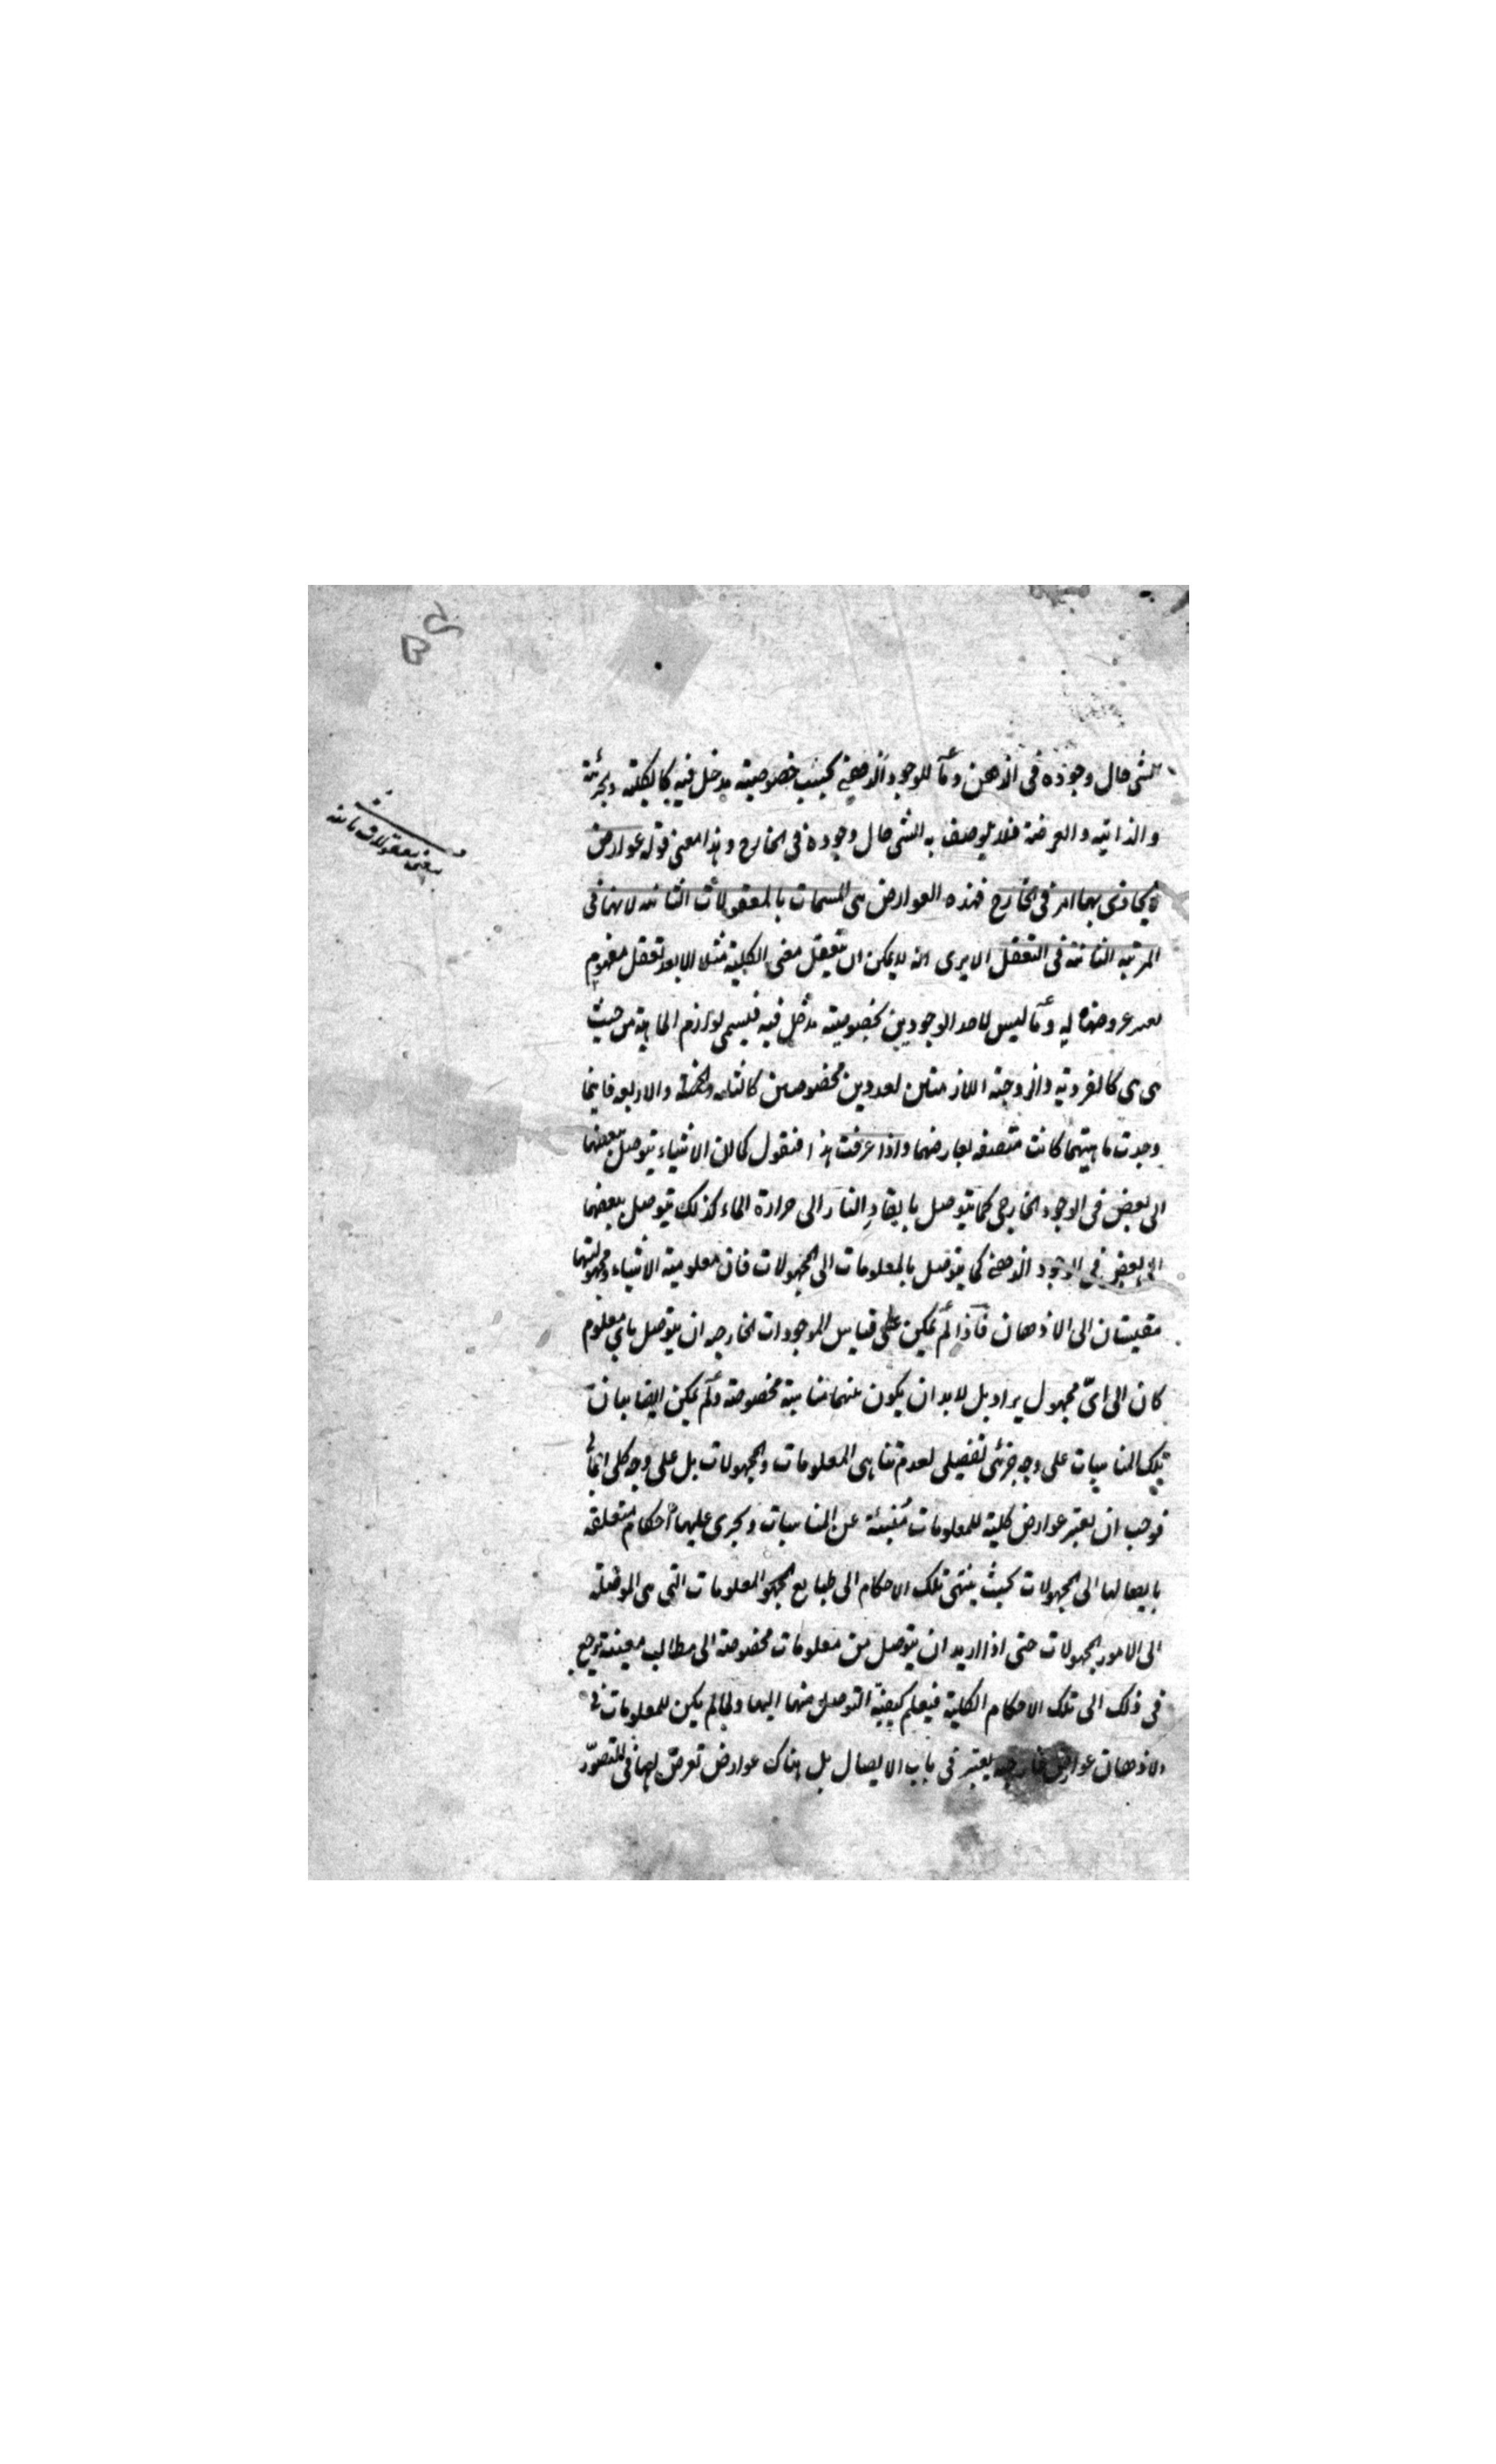 الشى حال وجوده فى الذهن وما للوجود الذهنى بحسب خصوصيته مدخل فيه كالكلية والجزئية
والذاتية والعرضية فلا يوصف به الشى حال وجوده فى الخارج وهذا معنى قوله عوارض
لا يحاذى بها امر فى الخارج فهذه العوارض هى المسمات بالمعقولات الثانية لانها فى
المرتبة الثانية فى التعقل الا يرى انه لا يمكن ان يتعقل معنى الكلية مثلا الا بعد تعقل مفهوم
يعتبر عروضها له وما ليس لاحد الوجودين بخصوصيته مدخل فيه فليسمى لوازم الماهية من حيث
هى هى كالفردية والزوجية اللازمتين لعددين مخصوصين كالثلثه والخمسة والاربعه فاينما
وجدت ماهيتهما كانت متصفه بعارضها واذا عرفت هذا فنقول كما ان الاشياء يتوصل ببعضها
الى بعض فى الوجود الخارجى كما يتوصل بايقاد النار الى حرارة الماء كذلك يتوصل ببعضها
الى بعض فى الوجود الذهنى كما يتوصل بالمعلومات الى المجهولات فان معلومية الاشياء ومجهوليتها
مقيستان الى الاذهان فاذا لم يمكن على قياس الموجودات الخارجيه ان يتوصل باى معلوم
كان الى اىّ مجهول يراد بل لابد ان يكون بينهما مناسبة مخصوصة ولم يمكن ايضا بيان
تلك المناسبات على وجه جزئى تفصيلى لعدم تناهى المعلومات والمجهولات بل على وجه كلى اجمالى
فوجب ان يعتبر عوارض كلية للمعلومات منبئة عن المناسبات ويجرى عليها احكام متعلقة
بايصالها الى المجهولات بحيث ينتهى تلك الاحكام الى طبايع المعلومات التى هى الموصلة
الى الامور المجهولات حتى اذا اريد ان يتوصل من معلومات مخصوصة الى مطالب معينة يرجع
فى ذلك الى تلك الاحكام الكلية فيعلم كيفية التوصل منها اليها ولما لم يكن للمعلومات فى
الاذهان عوارض خارجيه يعتبر فى باب الايصال بل هناك عوارض تعرض لها فى للتصوّر
معنى معقولات ثانيه